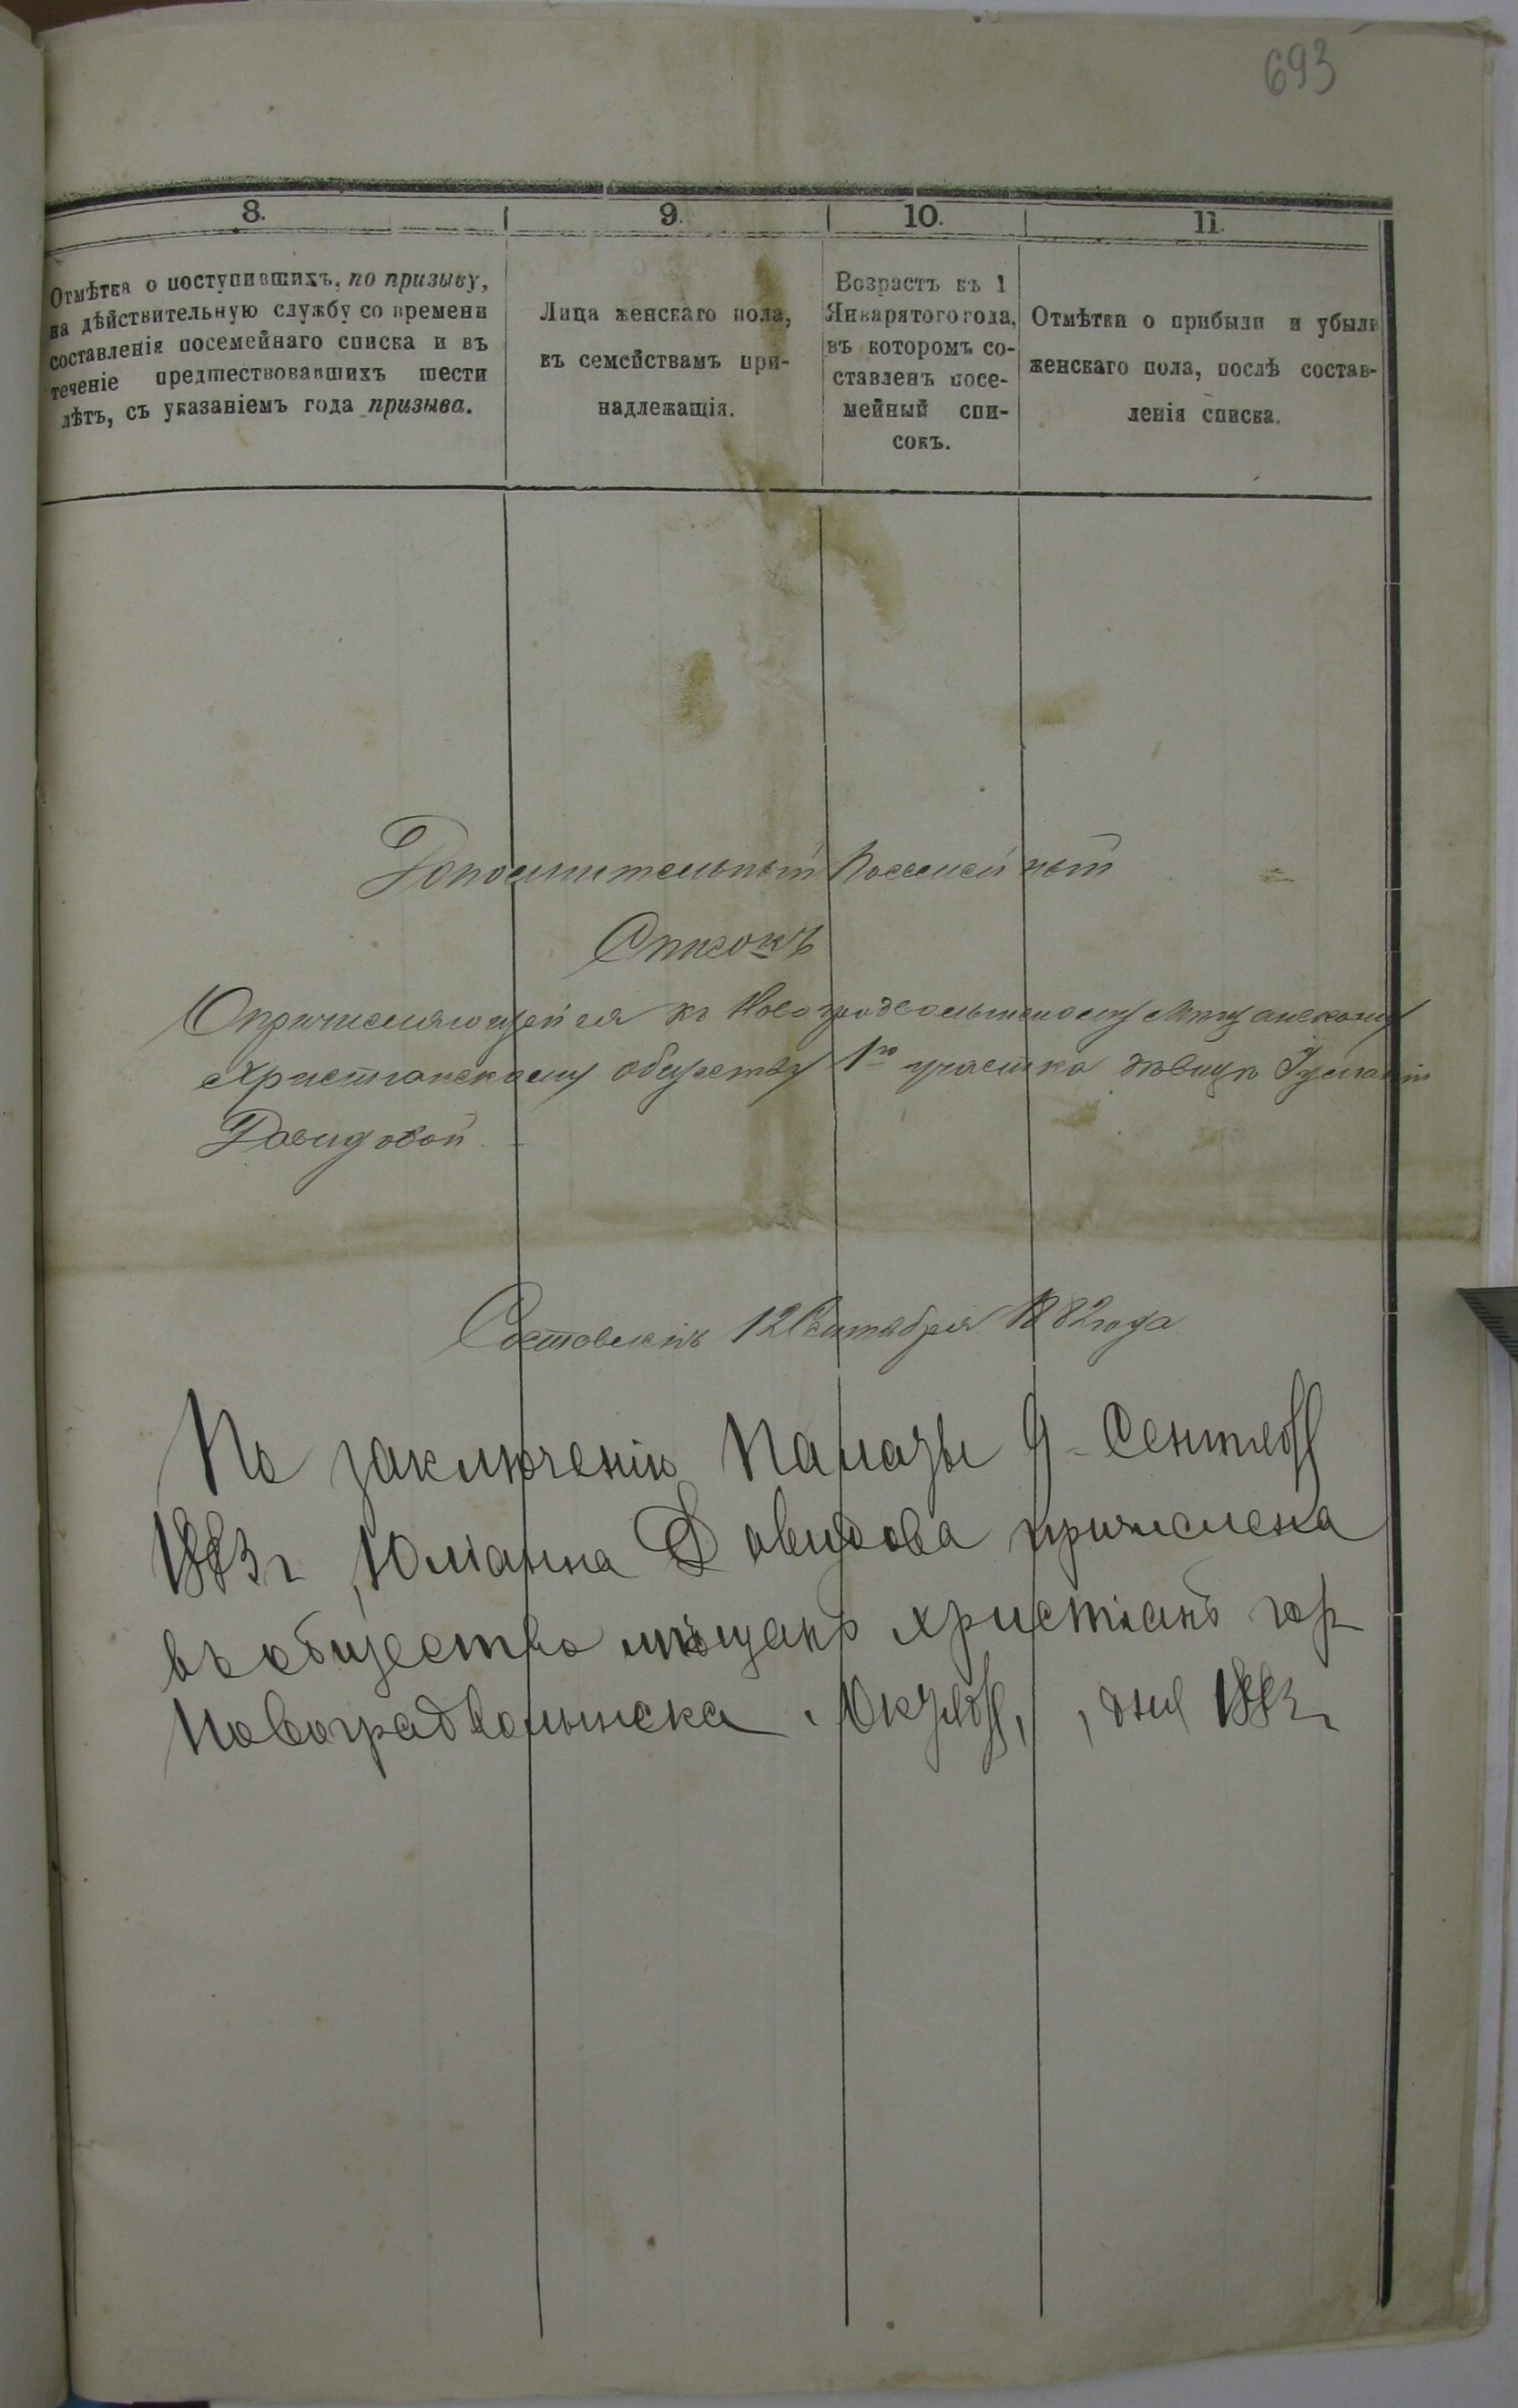 693
8. 9. 10. 11.
Отмѣтка о поступившихъ, по призыву,
на дѣйствительную службу со времени
составленія посемейнаго списка и въ
теченіе предшествовавшихъ шести
лѣтъ, съ указаніемъ года призыва.
Лица женскаго пола,
въ семействамъ при-
надлежащія.
Возрастъ къ 1
Января того года,
въ которомъ со-
ставленъ посе-
мейный спи-
сокъ.
Отмѣтки о прибыли и убыли
женскаго пола, послѣ состав-
ленія списка.
Дополнительный Посемейный
Списокъ
О причисляющейся къ Новоградволынскому Мѣщанскому
Христіанскому обществу 1го участка дѣвицѣ
Давидовой.
Составленъ 12 Сентября 1882 года
По заключенію Палаты 9 Сентяб
1883 г Юліанна Давидова причислена
въ общество мѣщанъ христіанъ гор
Новоградволынска дня 1883 г